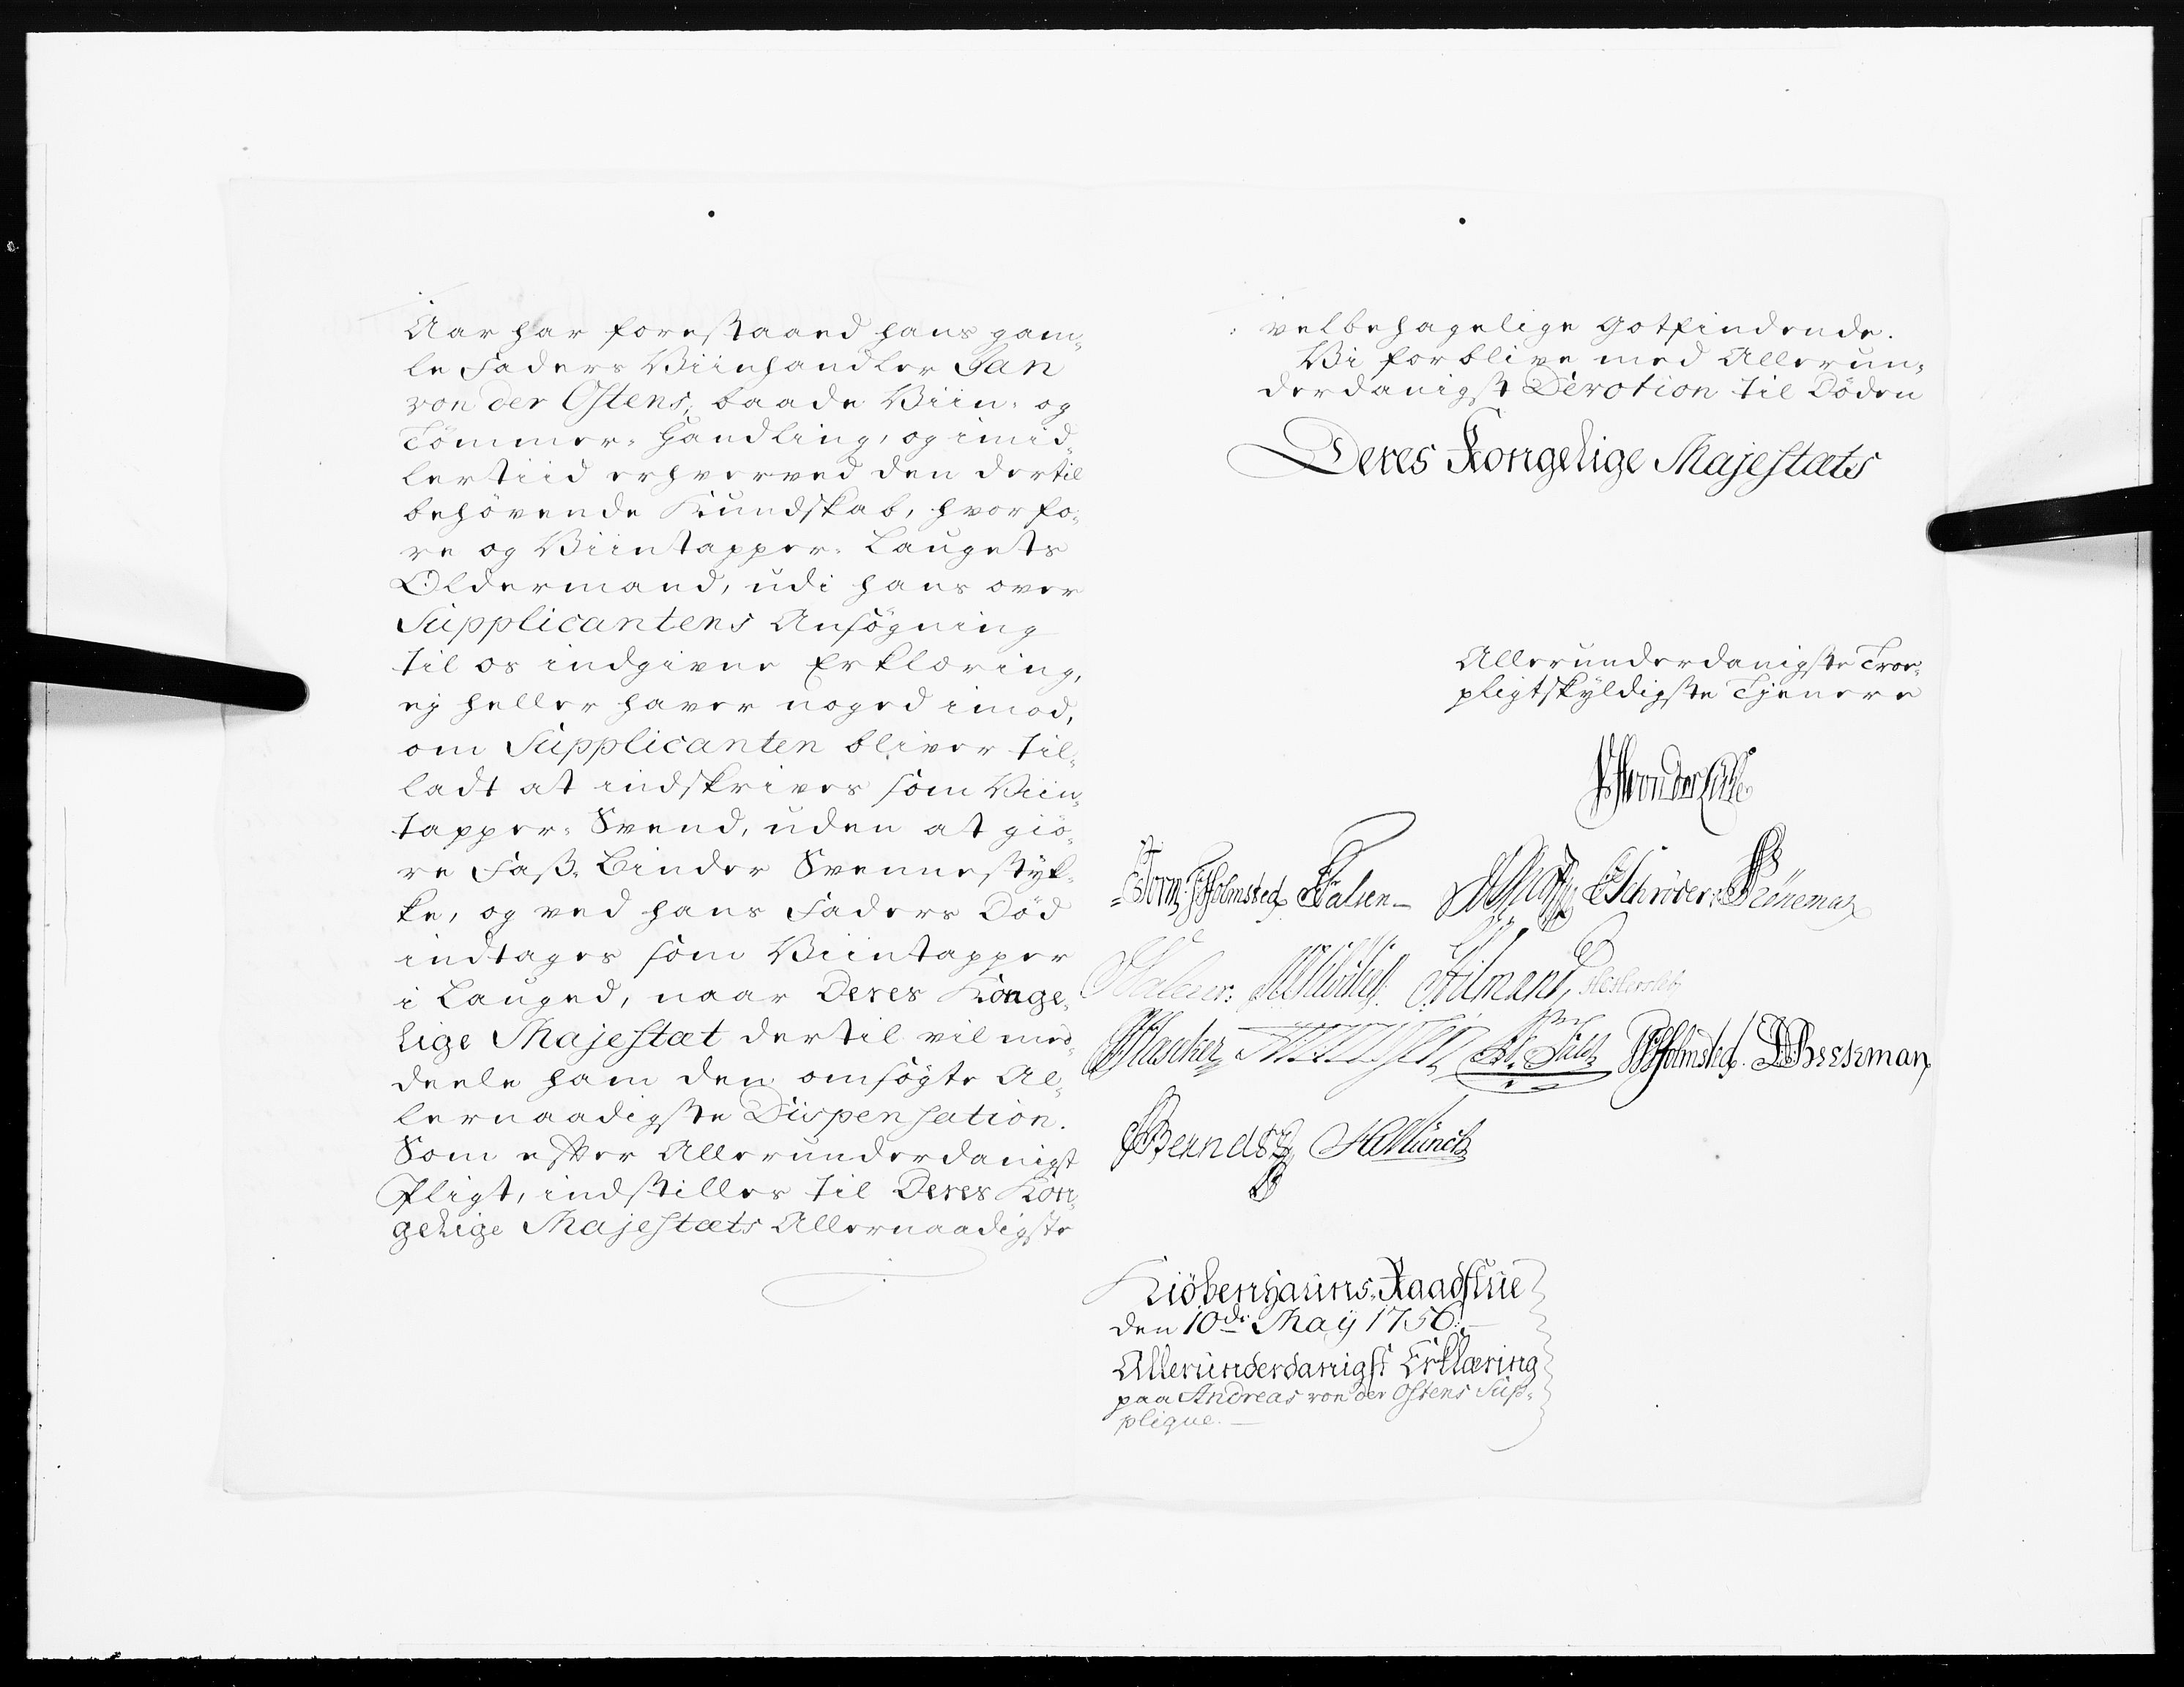 Aar har forestaaed hans gam-
le Faders Viinhandler Jan
von der Ostens, baade Viin- og
Tømmer-Handling, og imid-
lertiid erhverved den dertil
behövende Kundskab, hvorfo-
re og Viintapper-Laugets
Oldermand, udi hans over
Supplicantens Ansögning
til os indgivne Erklæring,
ej heller haver noged imod,
om Supplicanten bliver til-
ladt at indskrives som Viin-
tapper-Svend, uden at giö-
re Faß-Binder Svennestyk-
ke, og ved hans Faders Död
indtages som Viintapper
i Lauged, naar Deres Konge-
lige Majestæt dertil vil med-
deele ham den omsögte Al-
lernaadigste Dispensation.
Som efter Allerunderdanigst
Pligt, indstilles til Deres Kon-
gelige Majestæts Allernaadigste
velbehagelige Gotfindende.
Vi forblive med Allerun-
derdanigst Devotion til Döden
Deres Kongelige Majestæts
Allerunderdanigste Troe-
pligtskyldigste Tjenere
von der Lühe
Holmsted Falsen Schröder
Holmsted
Berndt HMünch
Kiöbenhavns Raadstue
den 10de May 1756.
Allerunderdanigst Erklæring
paa Andreas von der Ostens Sup-
plique.